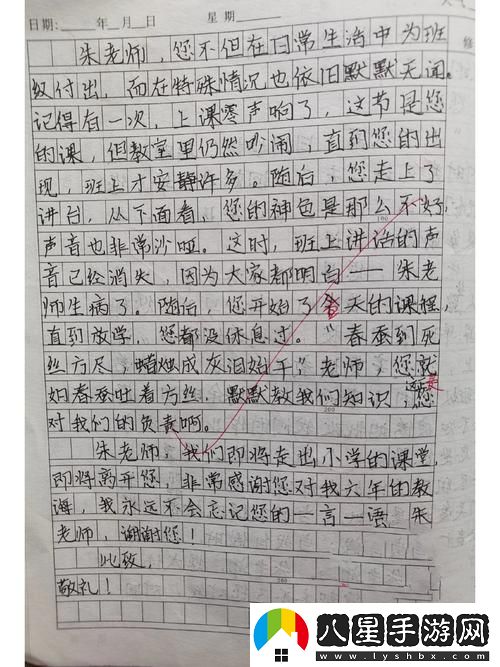 日期: 年 月 日 星期
朱老师，您不但在日常生活中为班
级付出，而在特殊情况也依旧默默无闻。
记得有一次，上课零声响了，这节是您
的课，但教室里仍然吵闹，直到您的出
现，班上才安静许多。随后，您走上了
讲台，从下面看，您的神色是那么不好，
声音也非常沙哑。这时，班上讲话的声
音已经消失，因为大家都明白——朱老
师生病了。随后，您开始了天的课程，
直到放学，您都没休息过。“春蚕到死
丝方尽，蜡烛成灰泪始干”老师，您就
如春蚕吐着方丝，默默教我们知识，这是您
对我们的负责啊。
朱老师，我们即将走出小学的课堂，
即将离开您，非常感谢您对我六年的教
诲，我永远不会忘记您的一言一语 朱
老师，谢谢您！
此致，
敬礼！
100
200
300
八星手游网
www.lyshbx.com